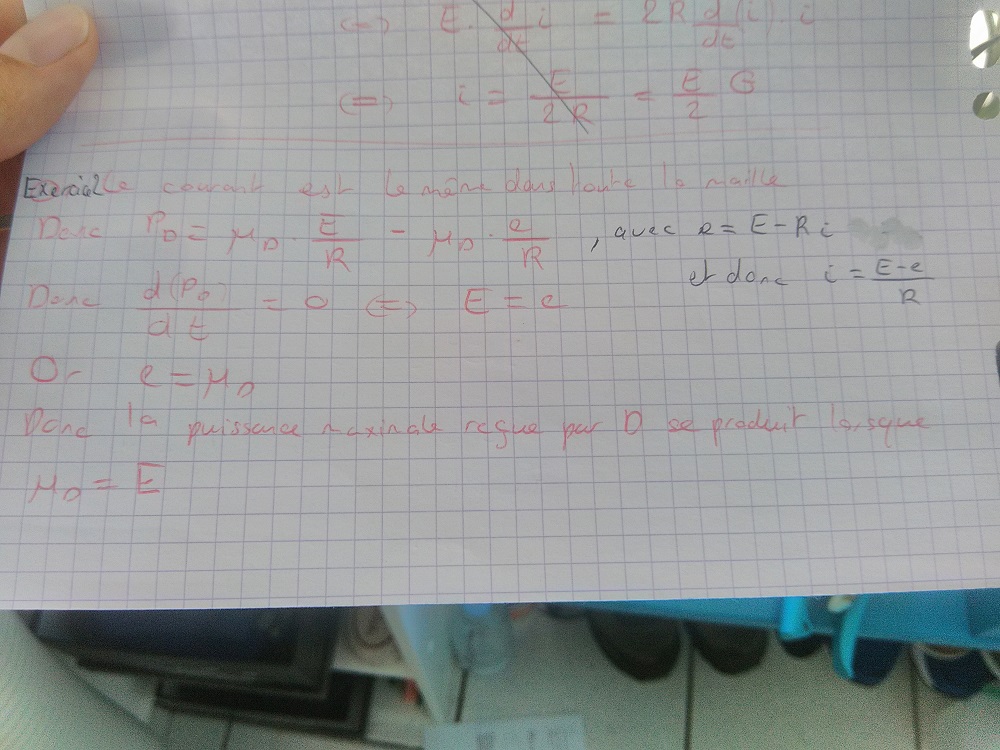 (=) E. d/dt i = 2R d(i)/dt . i
(=) i = E/2R = E/2 G
Exercice 2 Le courant est le même dans toute la maille
Donc P_D = μ_D . E/R - μ_D . e/R , avec e = E - Ri
et donc i = E-e/R
Donc d(P_D)/dt = 0 (=) E = e
Or e = μ_D
Donc la puissance maximale reçue par D se produit lorsque
μ_D = E